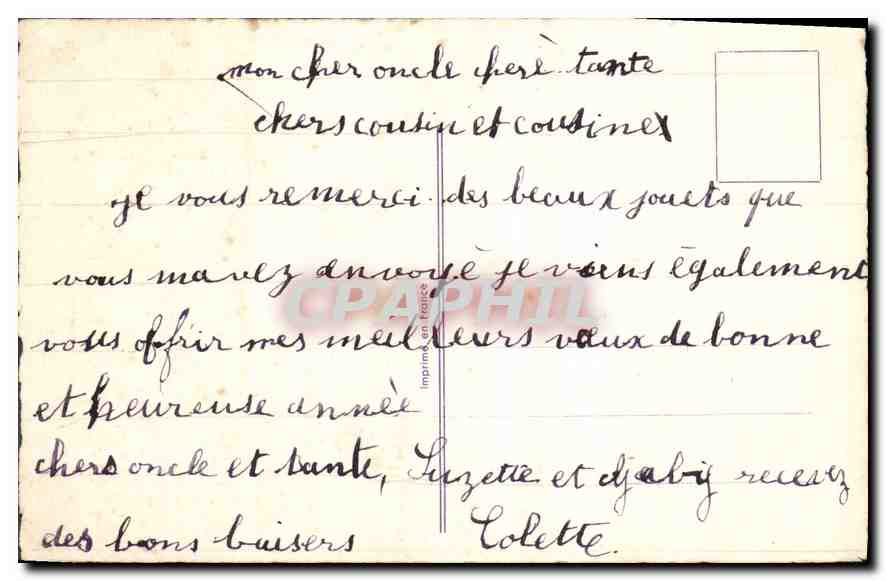 mon cher oncle cherè tante
chers cousin et cousines
je vous remerci des beaux jouets que
vous mavez envoyè je viens également
vous offrir mes meilleurs vœux de bonne
et heureuse annèe
chers oncle et tante, Suzette et recevez
des bons baisers Colette.
Imprimé en France
CPAPHIL